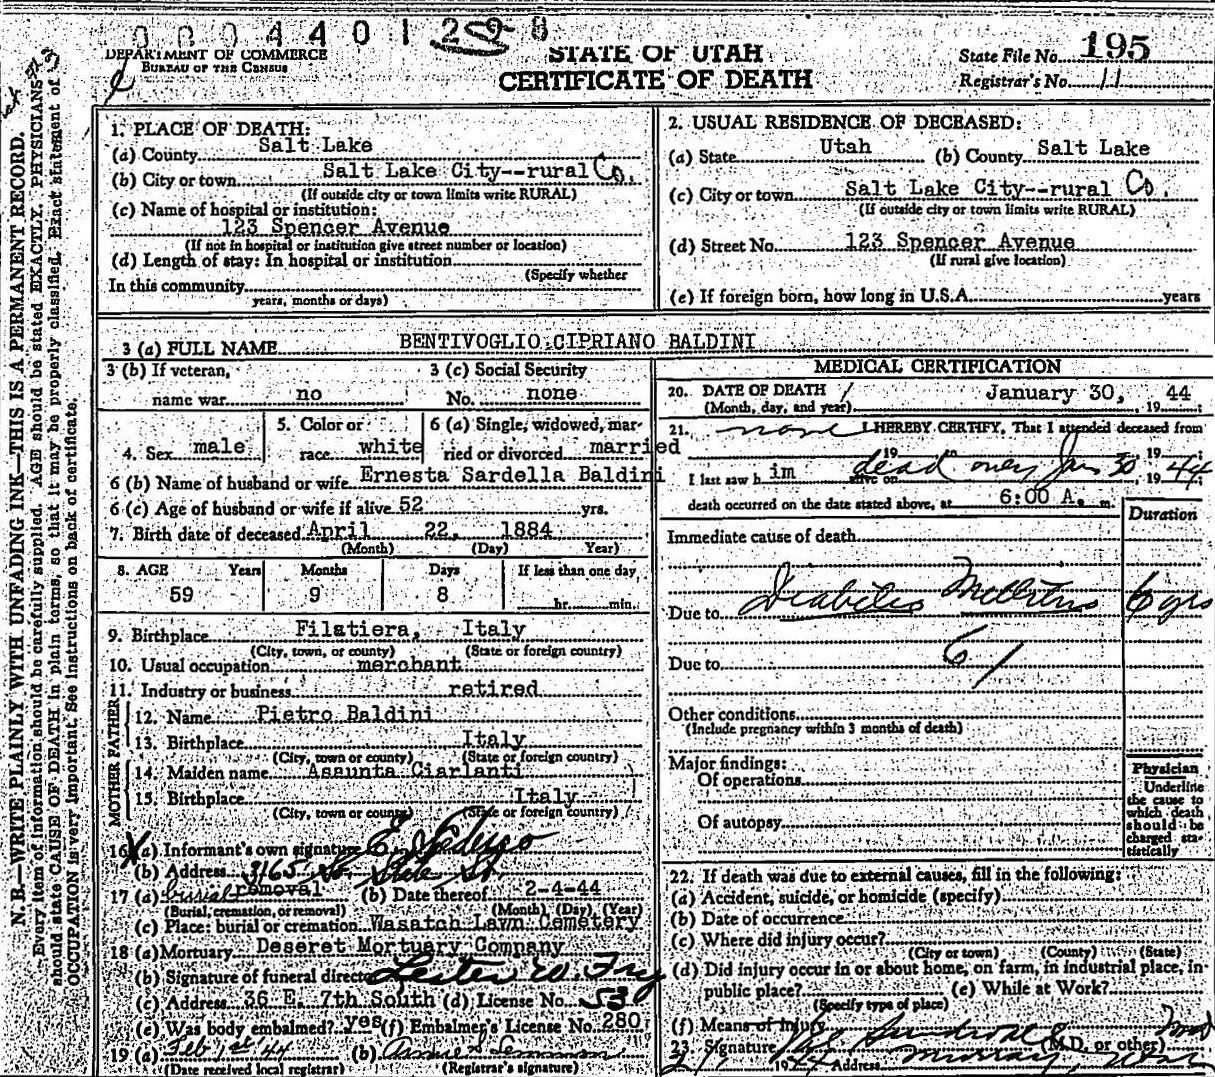 0004401298
DEPARTMENT OF COMMERCE
BUREAU OF THE CENSUS
STATE OF UTAH
CERTIFICATE OF DEATH
State File No. 195
Registrar's No. 11
N. B.—WRITE PLAINLY WITH UNFADING INK—THIS IS A PERMANENT RECORD.
Every item of information should be carefully supplied. AGE should be stated EXACTLY. PHYSICIANS
should state CAUSE OF DEATH in plain terms, so that it may be properly classified. Exact statement of
OCCUPATION is very important. See instructions on back of certificate.
1. PLACE OF DEATH:
(a) County Salt Lake
(b) City or town Salt Lake City--rural Co.
(If outside city or town limits write RURAL)
(c) Name of hospital or institution:
123 Spencer Avenue
(If not in hospital or institution give street number or location)
(d) Length of stay: In hospital or institution
(Specify whether
In this community
years, months or days)
2. USUAL RESIDENCE OF DECEASED:
(a) State Utah (b) County Salt Lake
(c) City or town Salt Lake City--rural Co.
(If outside city or town limits write RURAL)
(d) Street No. 123 Spencer Avenue
(If rural give location)
(e) If foreign born, how long in U.S.A. years
3 (a) FULL NAME BENTIVOGLIO CIPRIANO BALDINI
3 (b) If veteran, 3 (c) Social Security
name war no No. none
4. Sex male 5. Color or race white 6 (a) Single, widowed, married or divorced married
6 (b) Name of husband or wife Ernesta Sardella Baldini
6 (c) Age of husband or wife if alive 52 yrs.
7. Birth date of deceased April 22, 1884
(Month) (Day) Year)
8. AGE Years Months Days If less than one day
59 9 8 hr. min.
9. Birthplace Filatiera, Italy
(City, town, or county) (State or foreign country)
10. Usual occupation merchant
11. Industry or business retired
FATHER
12. Name Pietro Baldini
13. Birthplace Italy
(City, town or county) (State or foreign country)
MOTHER
14. Maiden name Assunta Ciarlanti
15. Birthplace Italy
(City, town or county) (State or foreign country)
16 (a) Informant's own signature E.
(b) Address 3165 So State St
17 (a) burial removal (b) Date thereof 2-4-44
(Burial, cremation, or removal) (Month) (Day) (Year)
(c) Place: burial or cremation Wasatch Lawn Cemetery
18 (a) Mortuary Deseret Mortuary Company
(b) Signature of funeral director Lester W. Fry
(c) Address 36 E. 7th South (d) License No. 530
(e) Was body embalmed? yes (f) Embalmer's License No. 280
19 (a) Feb 1st '44 (b)
(Date received local registrar) (Registrar's signature)
MEDICAL CERTIFICATION
20. DATE OF DEATH January 30, 1944
(Month, day, and year)
21. none I HEREBY CERTIFY, That I attended deceased from
19 to 19
I last saw him alive on dead only Jan 30, 1944
death occurred on the date stated above, at 6:00 A. m.
Duration
Immediate cause of death
Due to Diabetes Mellitus 6 yrs
61
Due to
Other conditions
(Include pregnancy within 3 months of death)
Major findings:
Of operations
Of autopsy
Physician
Underline
the cause to
which death
should be
charged sta-
tistically
22. If death was due to external causes, fill in the following:
(a) Accident, suicide, or homicide (specify)
(b) Date of occurrence
(c) Where did injury occur?
(City or town) (County) (State)
(d) Did injury occur in or about home, on farm, in industrial place, in
public place? (e) While at Work?
(Specify type of place)
(f) Means of Injury
23. Signature (M.D. or other)
2/1 1944 Address Murray, Utah